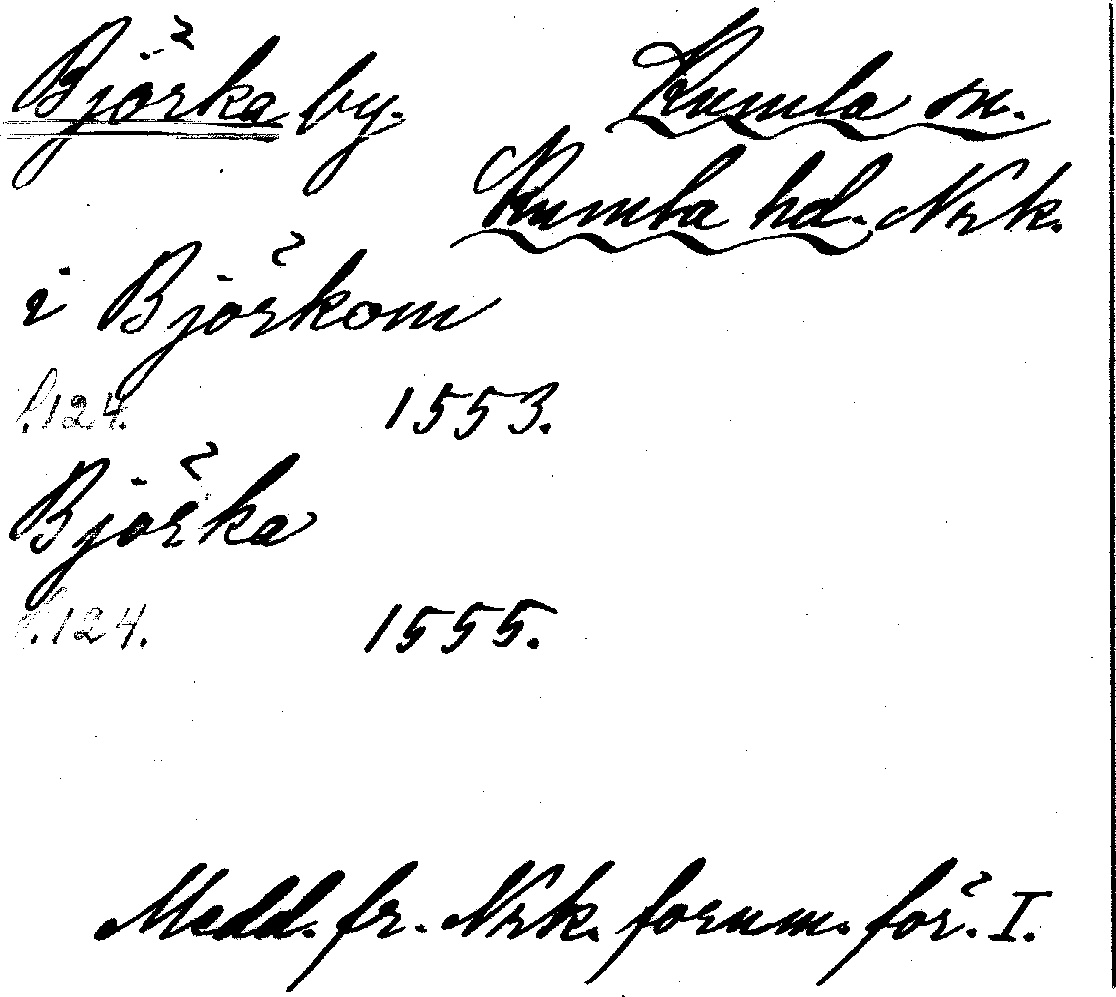 Björka by. Kumla sn.
Kumla hd. Nrk.
i Björkom
s. 124. 1553.
Björka
s. 124. 1555.
Medd. fr. Nrk. fornm. för. I.